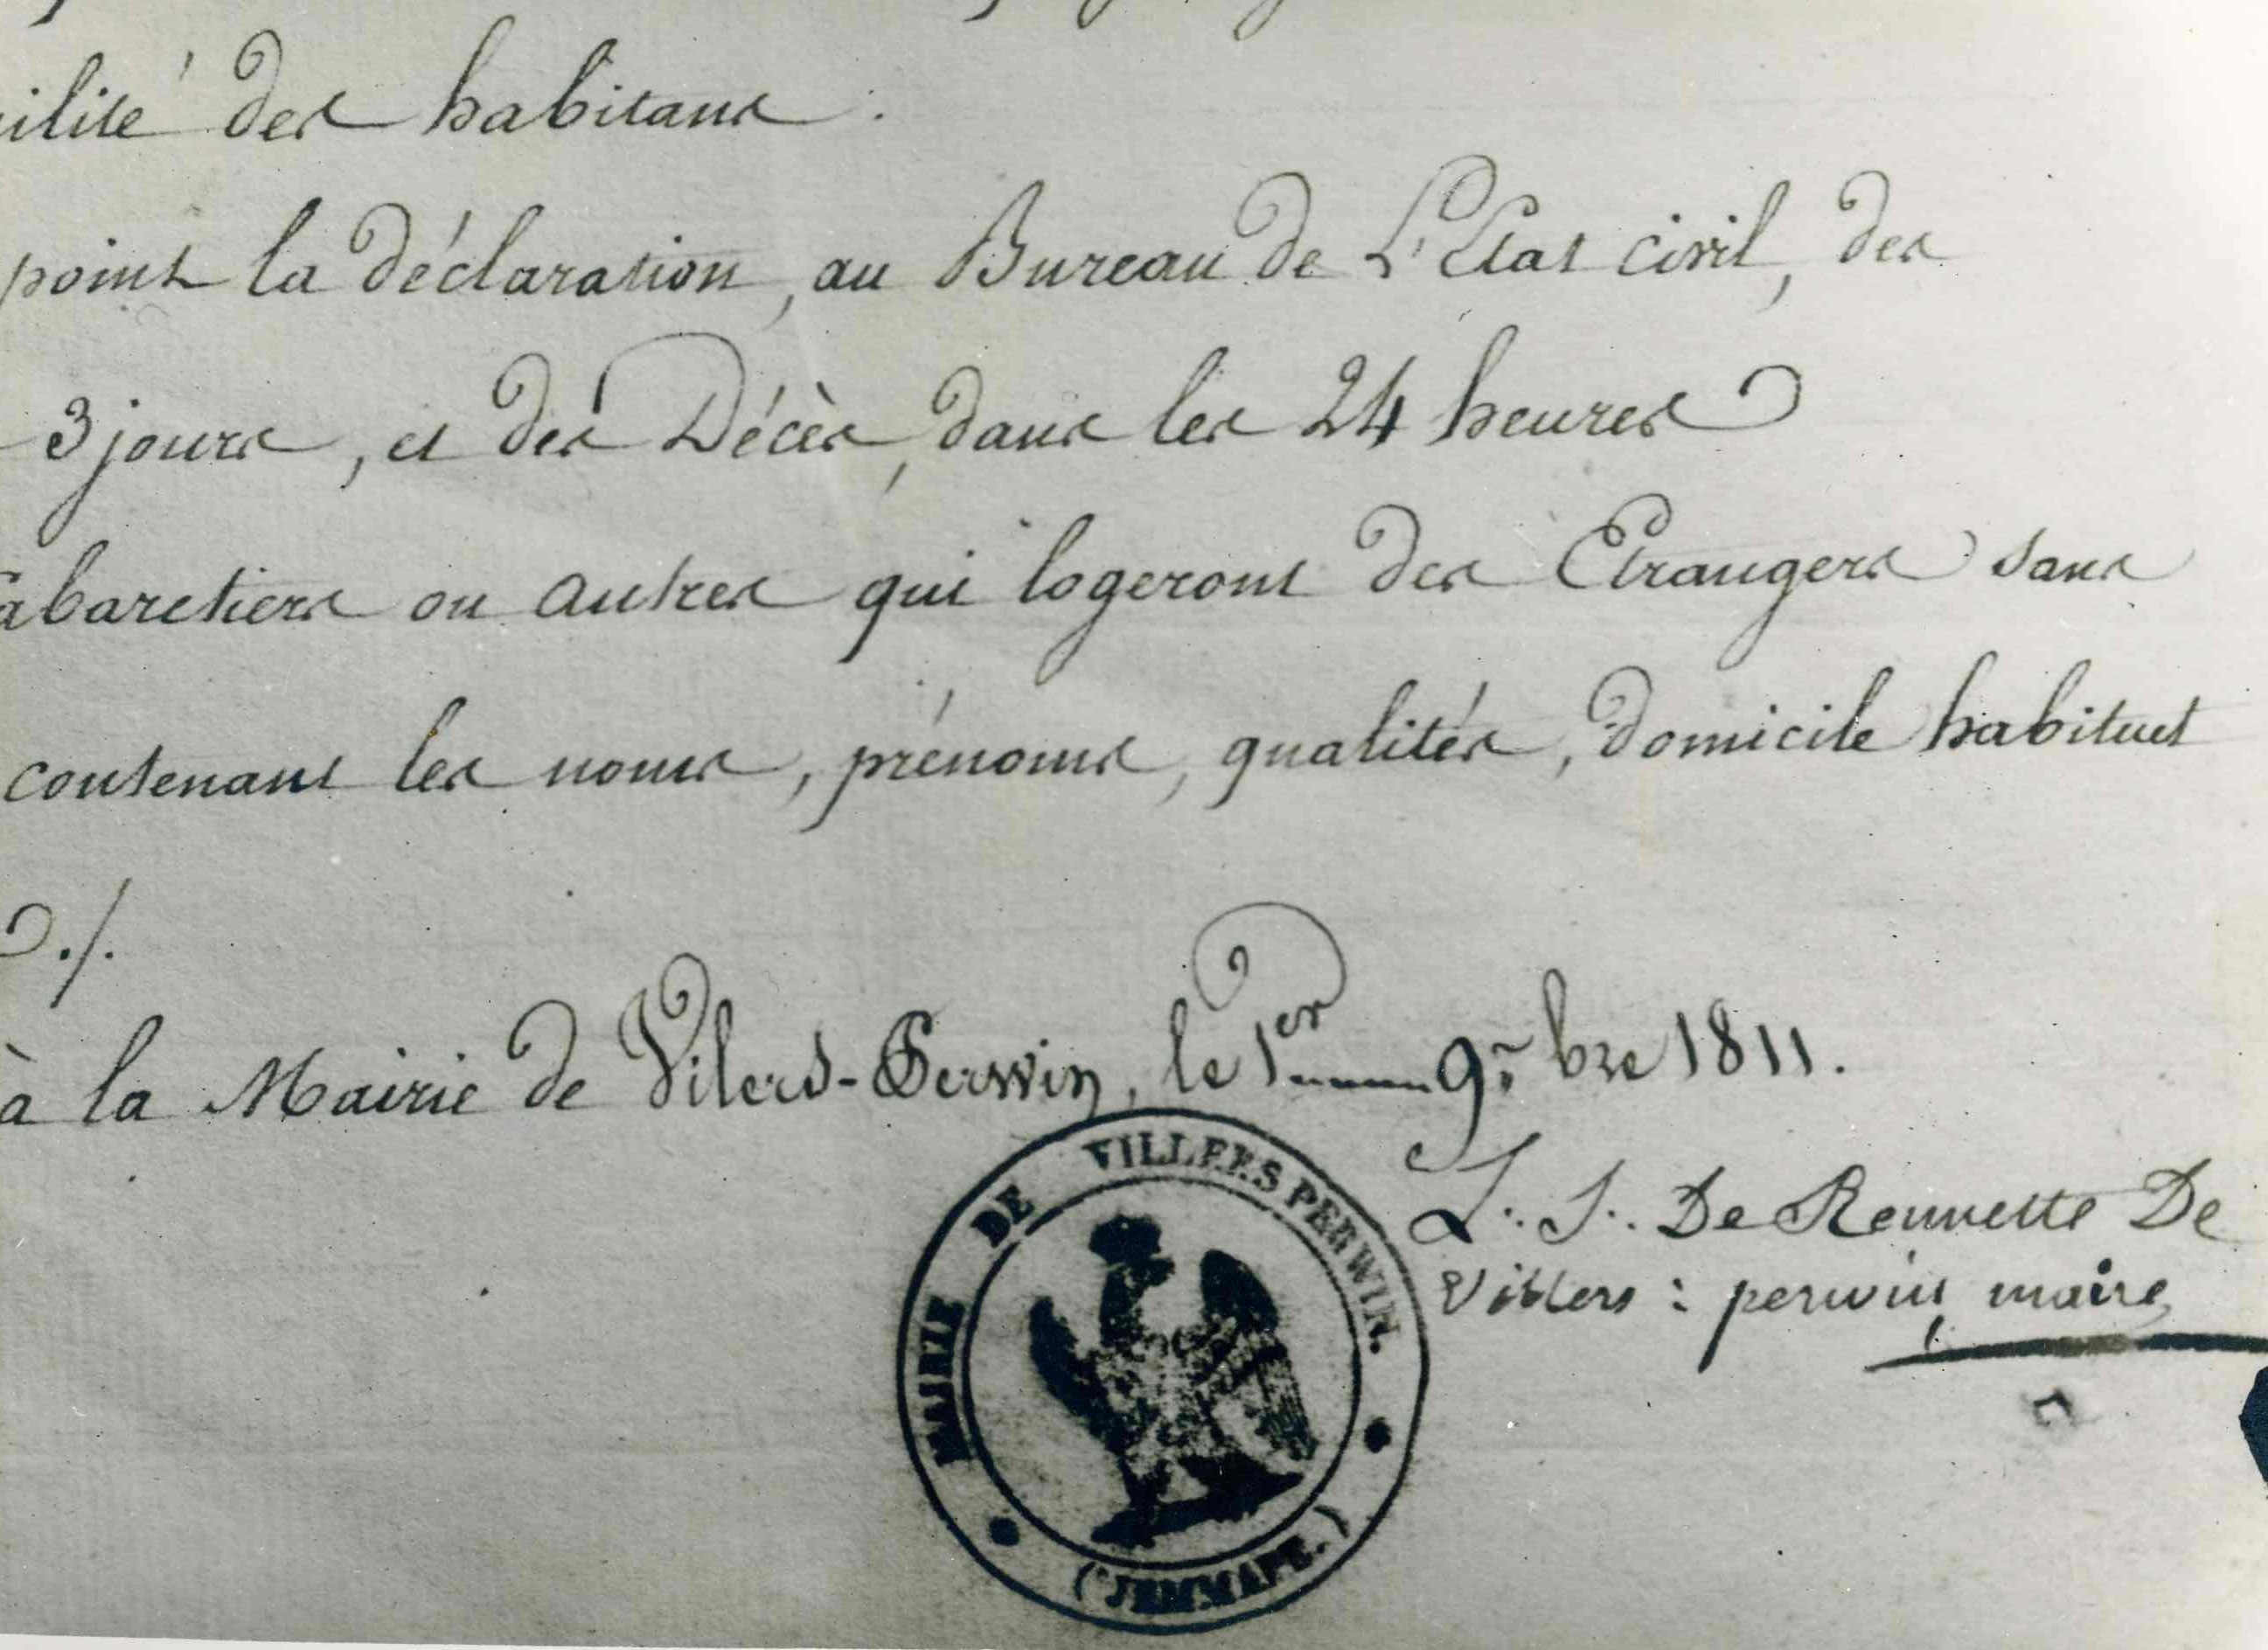 ilité des habitans :
point la déclaration, au Bureau de L'Etat civil, des
3 jours, et des Décès, dans les 24 heures
abaretiers ou autres qui logeront des Etrangers sans
contenant les noms, prénoms, qualités, domicile habituel
./.
à la Mairie de Vilers-Perwin, le 1er 9.bre 1811.
MAIRIE DE VILLERS PERWIN.
(JEMMAPE.)
De Rennette De
Villers : perwin, maire